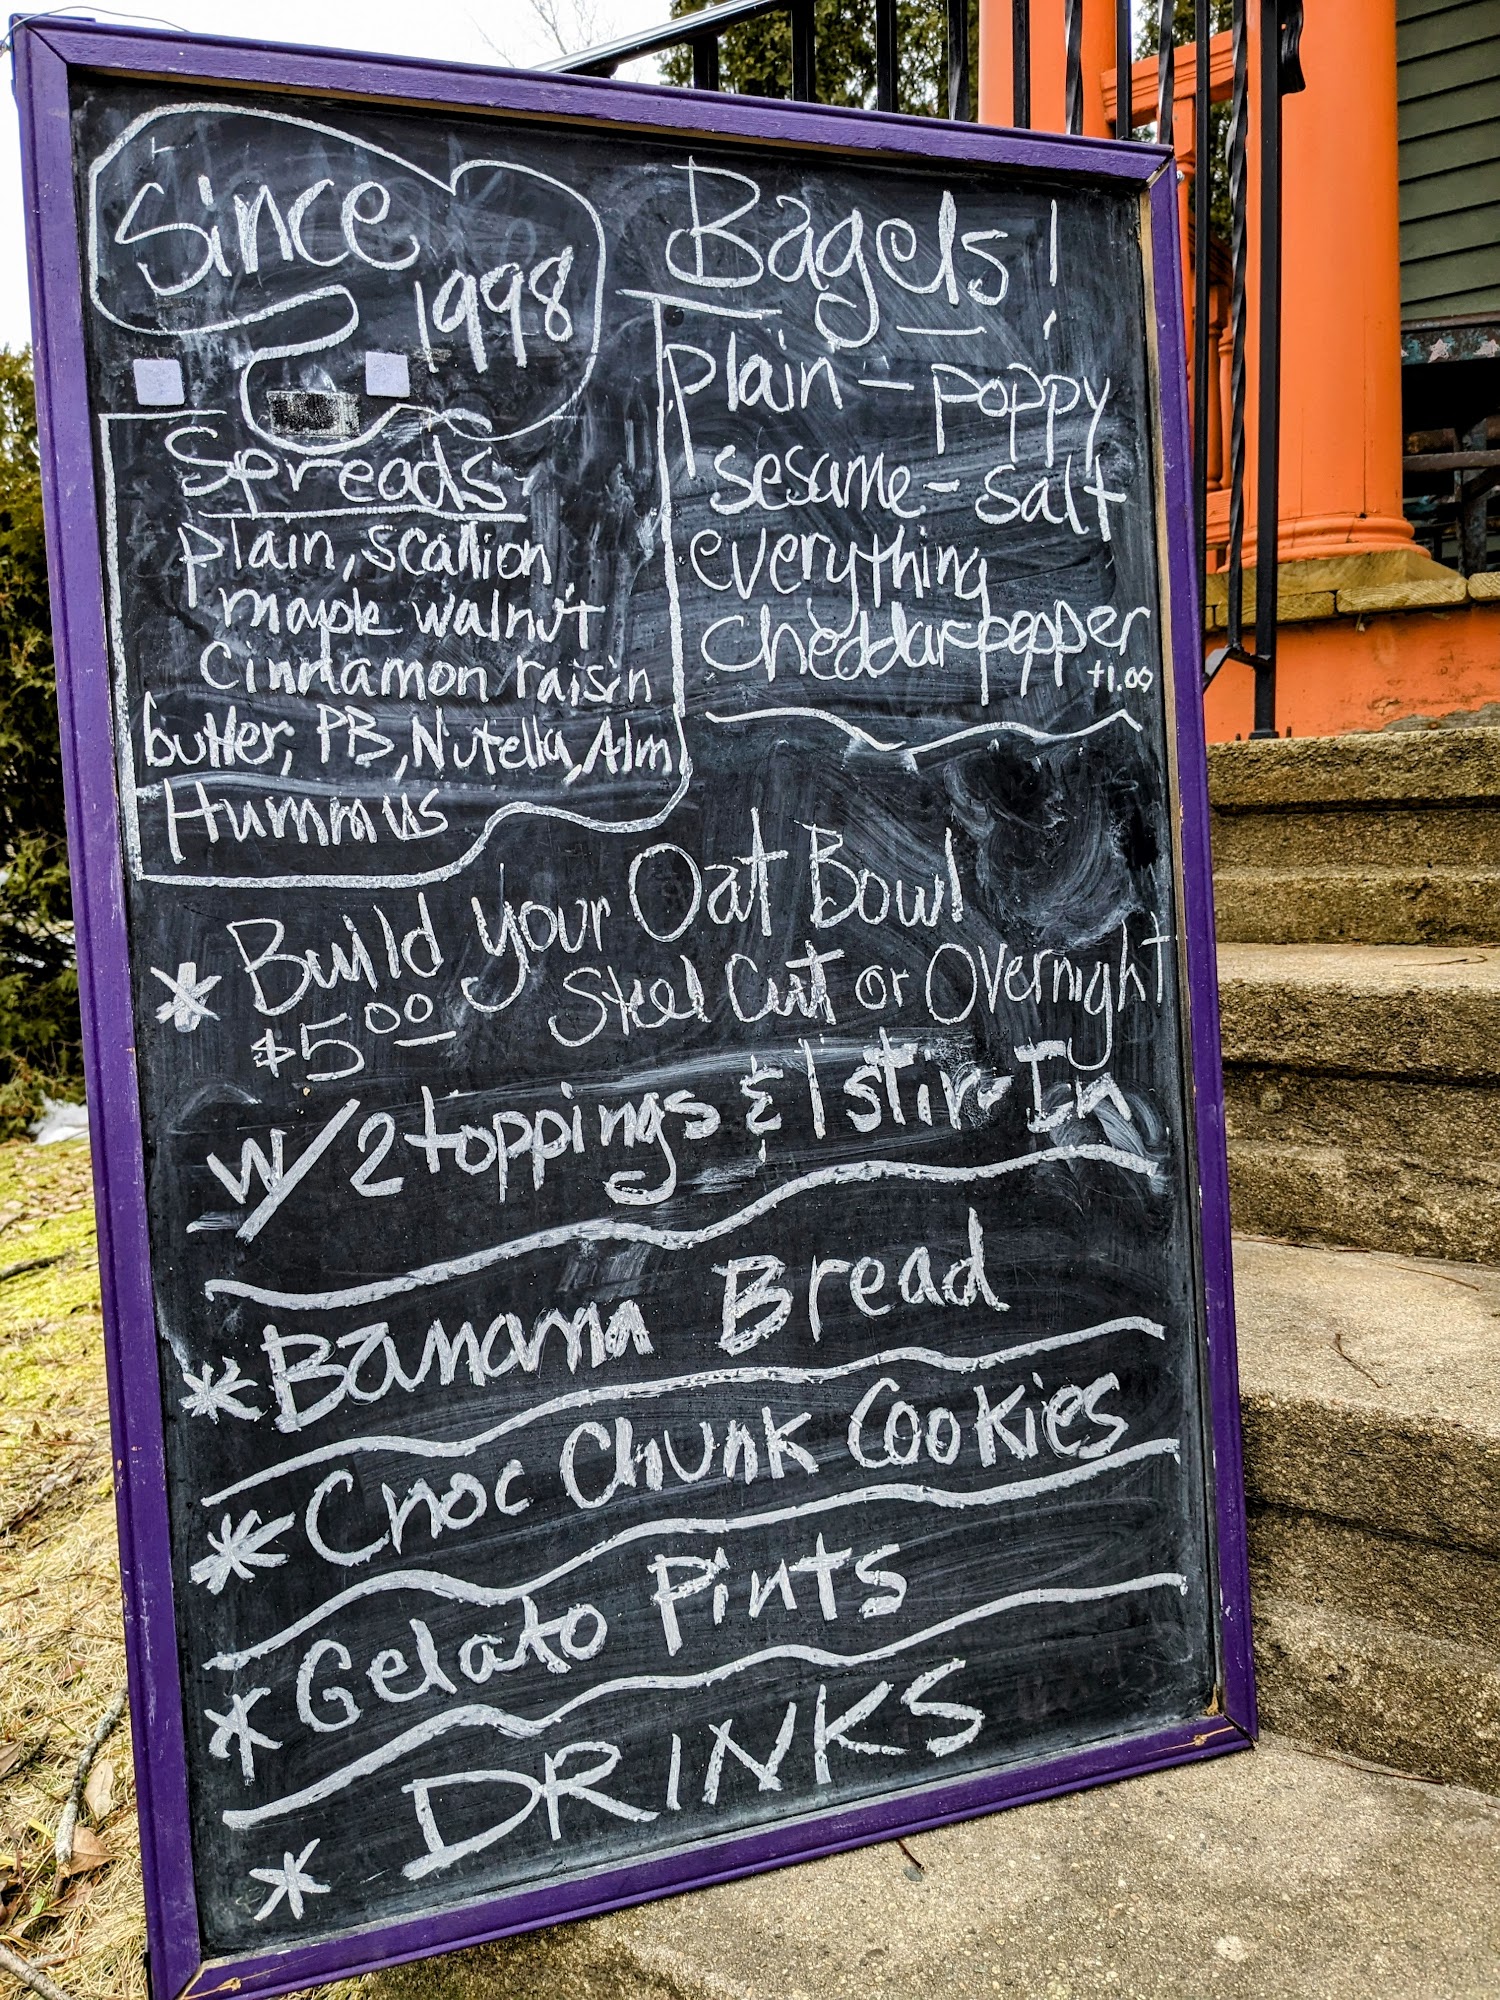 Since
1998
Bagels!
plain - poppy
sesame - salt
everything
cheddar pepper
+1.00
Spreads
plain, scallion,
maple walnut
Cinnamon raisin
butter, PB, Nutella, Alm
Hummus
* Build your Oat Bowl
$5.00 Steel Cut or Overnight
w/ 2 toppings & 1 stir-In
* Banana Bread
* Choc Chunk Cookies
* Gelato Pints
* DRINKS